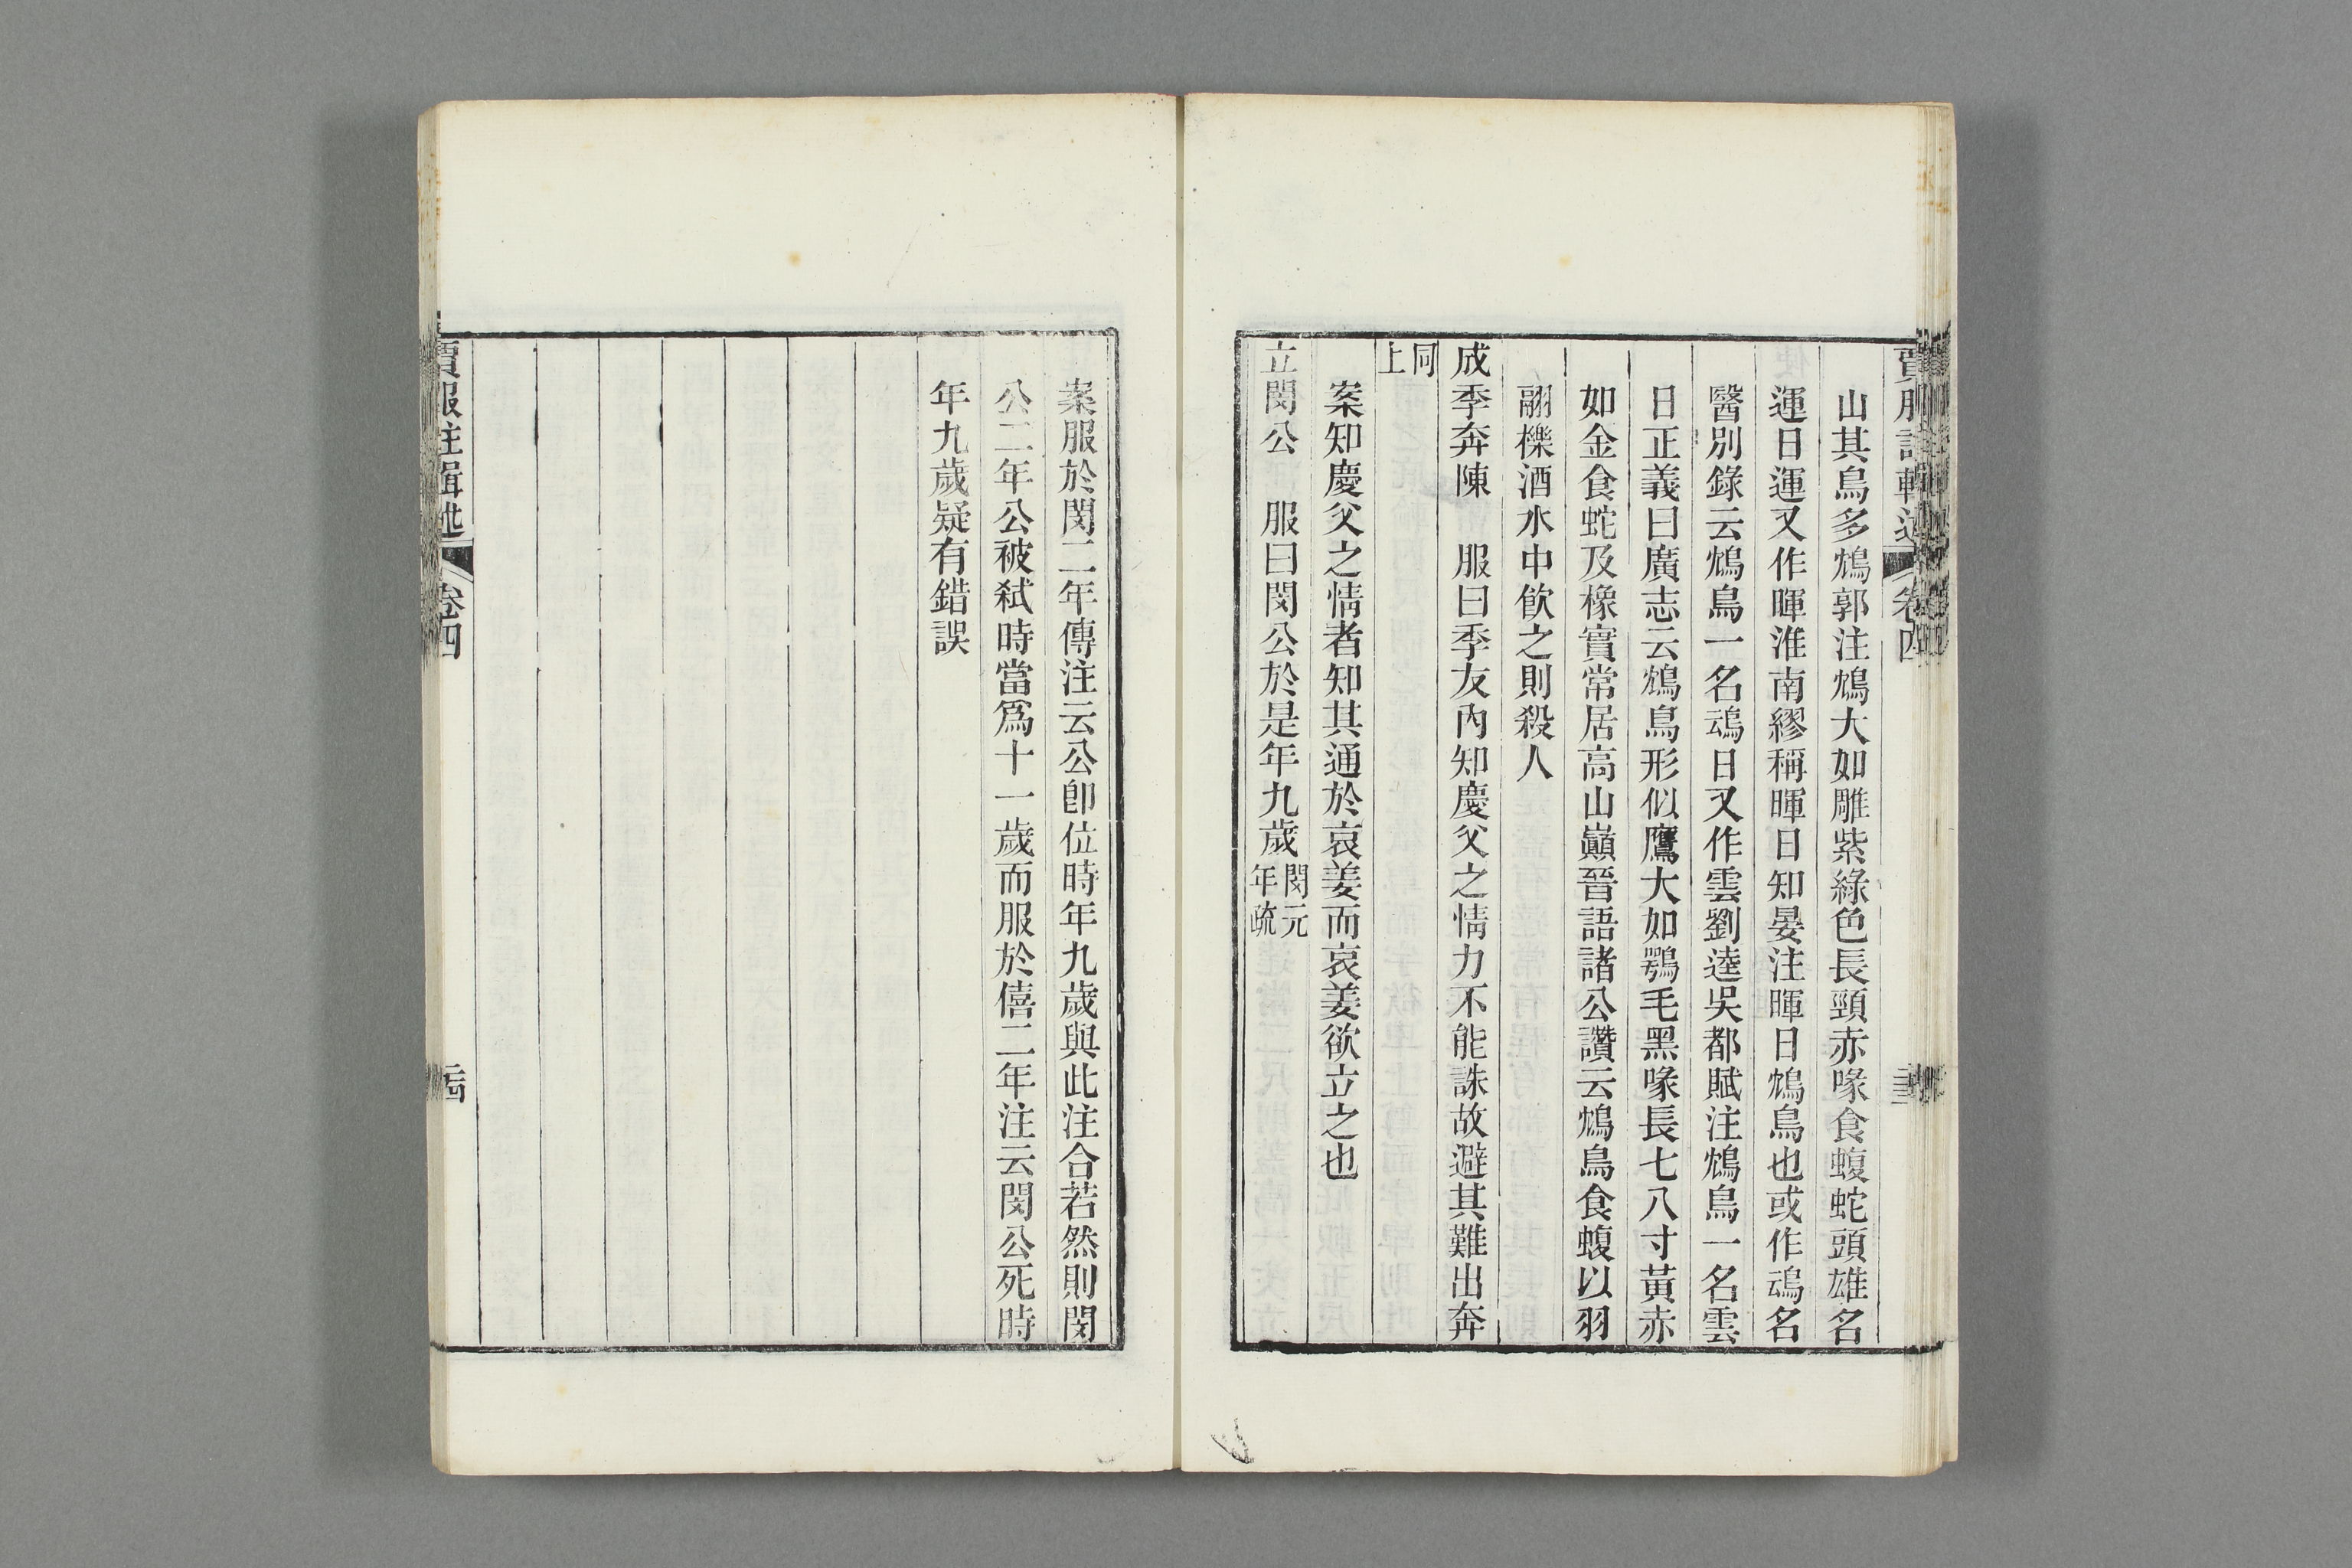 賈服注輯述 卷四
山其鳥多鴆郭注鴆大如雕紫綠色長頸赤喙食蝮蛇頭雄名
運日運又作暉淮南繆稱暉日知晏注暉日鴆鳥也或作鴆名
醫別錄云鴆鳥一名䲰日又作雲劉逵吳都賦注鴆鳥一名雲
日正義曰廣志云鴆鳥形似鷹大如鶚毛黑喙長七八寸黃赤
如金食蛇及橡實常居高山巔晉語諸公讚云鴆鳥食蝮以羽
翮櫟酒水中飲之則殺人
成季奔陳 服曰季友內知慶父之情力不能誅故避其難出奔
同上
案知慶父之情者知其通於哀姜而哀姜欲立之也
立閔公 服曰閔公於是年九歲閔元年疏
案服於閔二年傳注云公卽位時年九歲與此注合若然則閔
公二年公被弑時當爲十一歲而服於僖二年注云閔公死時
年九歲疑有錯誤
賈服注輯述 卷四 二四